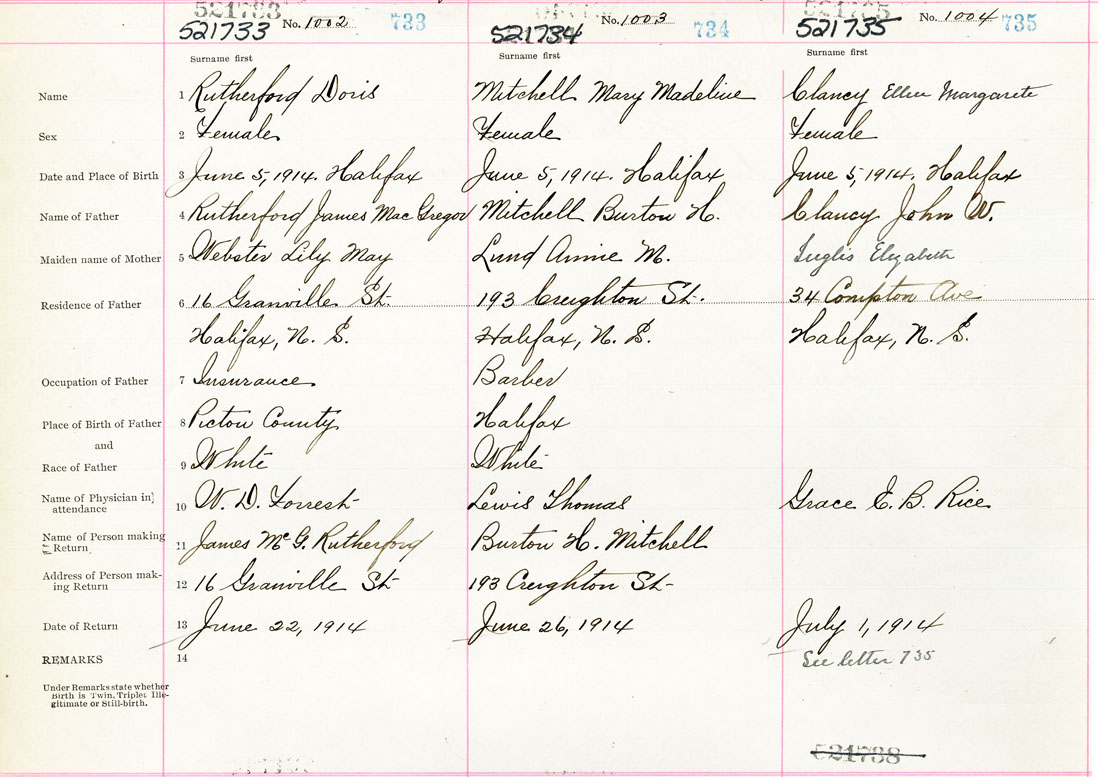 521733 No. 1002 733
521734 No. 1003 734
521735 No. 1004 735
Surname first Surname first Surname first
Name 1 Rutherford Doris Mitchell Mary Madeline Clancy Ellen Margarete
Sex 2 Female Female Female
Date and Place of Birth 3 June 5, 1914. Halifax June 5, 1914. Halifax June 5, 1914. Halifax
Name of Father 4 Rutherford James MacGregor Mitchell Burton H. Clancy John W.
Maiden name of Mother 5 Webster Lily May Lund Annie M. Inglis Elizabeth
Residence of Father 6 16 Granville St. 193 Creighton St. 34 Compton Ave
Halifax, N. S. Halifax, N. S. Halifax, N. S.
Occupation of Father 7 Insurance Barber
Place of Birth of Father 8 Picton County Halifax
and
Race of Father 9 White White
Name of Physician in
attendance 10 W. D. Forrest Lewis Thomas Grace E. B. Rice
Name of Person making
Return 11 James McG. Rutherford Burton H. Mitchell
Address of Person mak-
ing Return 12 16 Granville St 193 Creighton St
Date of Return 13 June 22, 1914 June 26, 1914 July 1, 1914
REMARKS 14 See letter 735
Under Remarks state whether
Birth is Twin, Triplet Ille-
gitimate or Still-birth.
521738